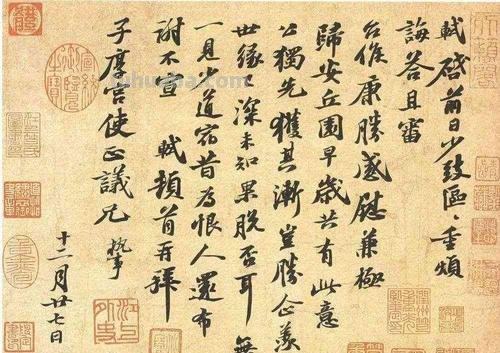 軾啓前日少致區〻重煩
誨答且審
台候康勝感慰兼極
歸安丘園早歲共有此意
公獨先獲其漸豈勝企羨
世緣已深未知果脫否耳無
一見少道宿昔爲恨人還布
謝不宣 軾頓首再拜
子厚宫使正議兄 執事
十二月廿七日